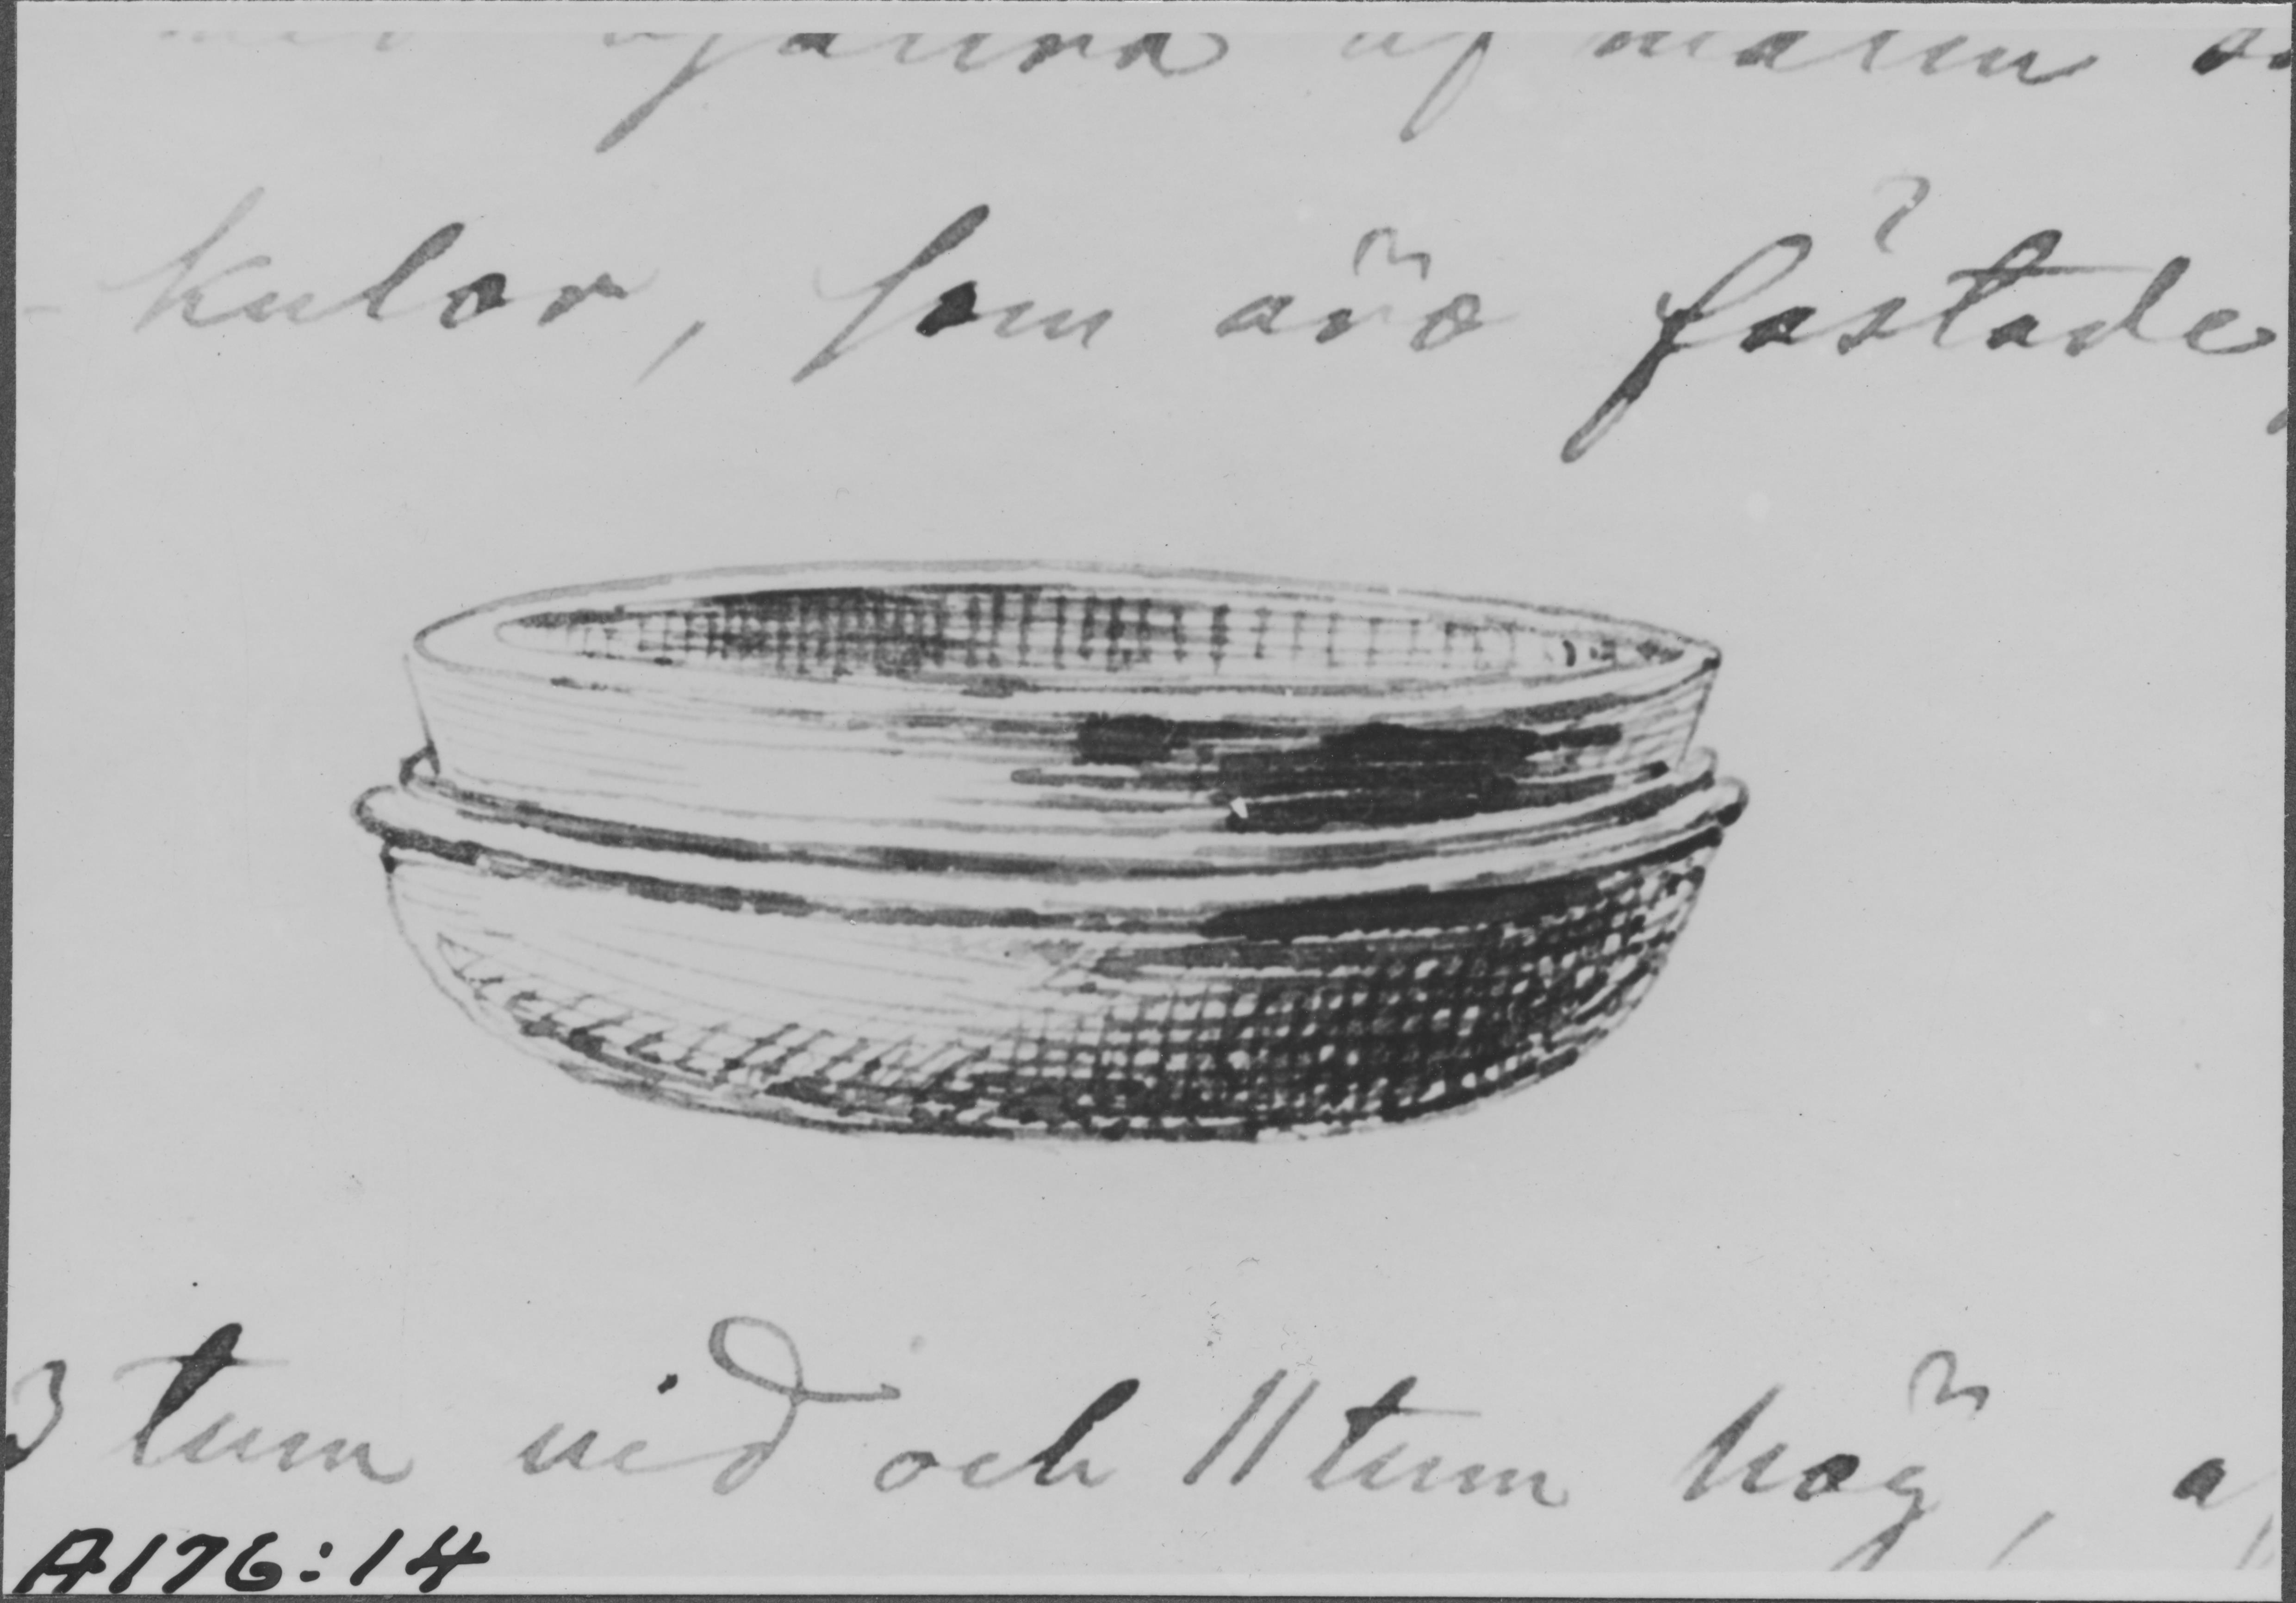 af malm
kulor, som äro fästade
3 tum vid och 11 tum hög, af
A176:14